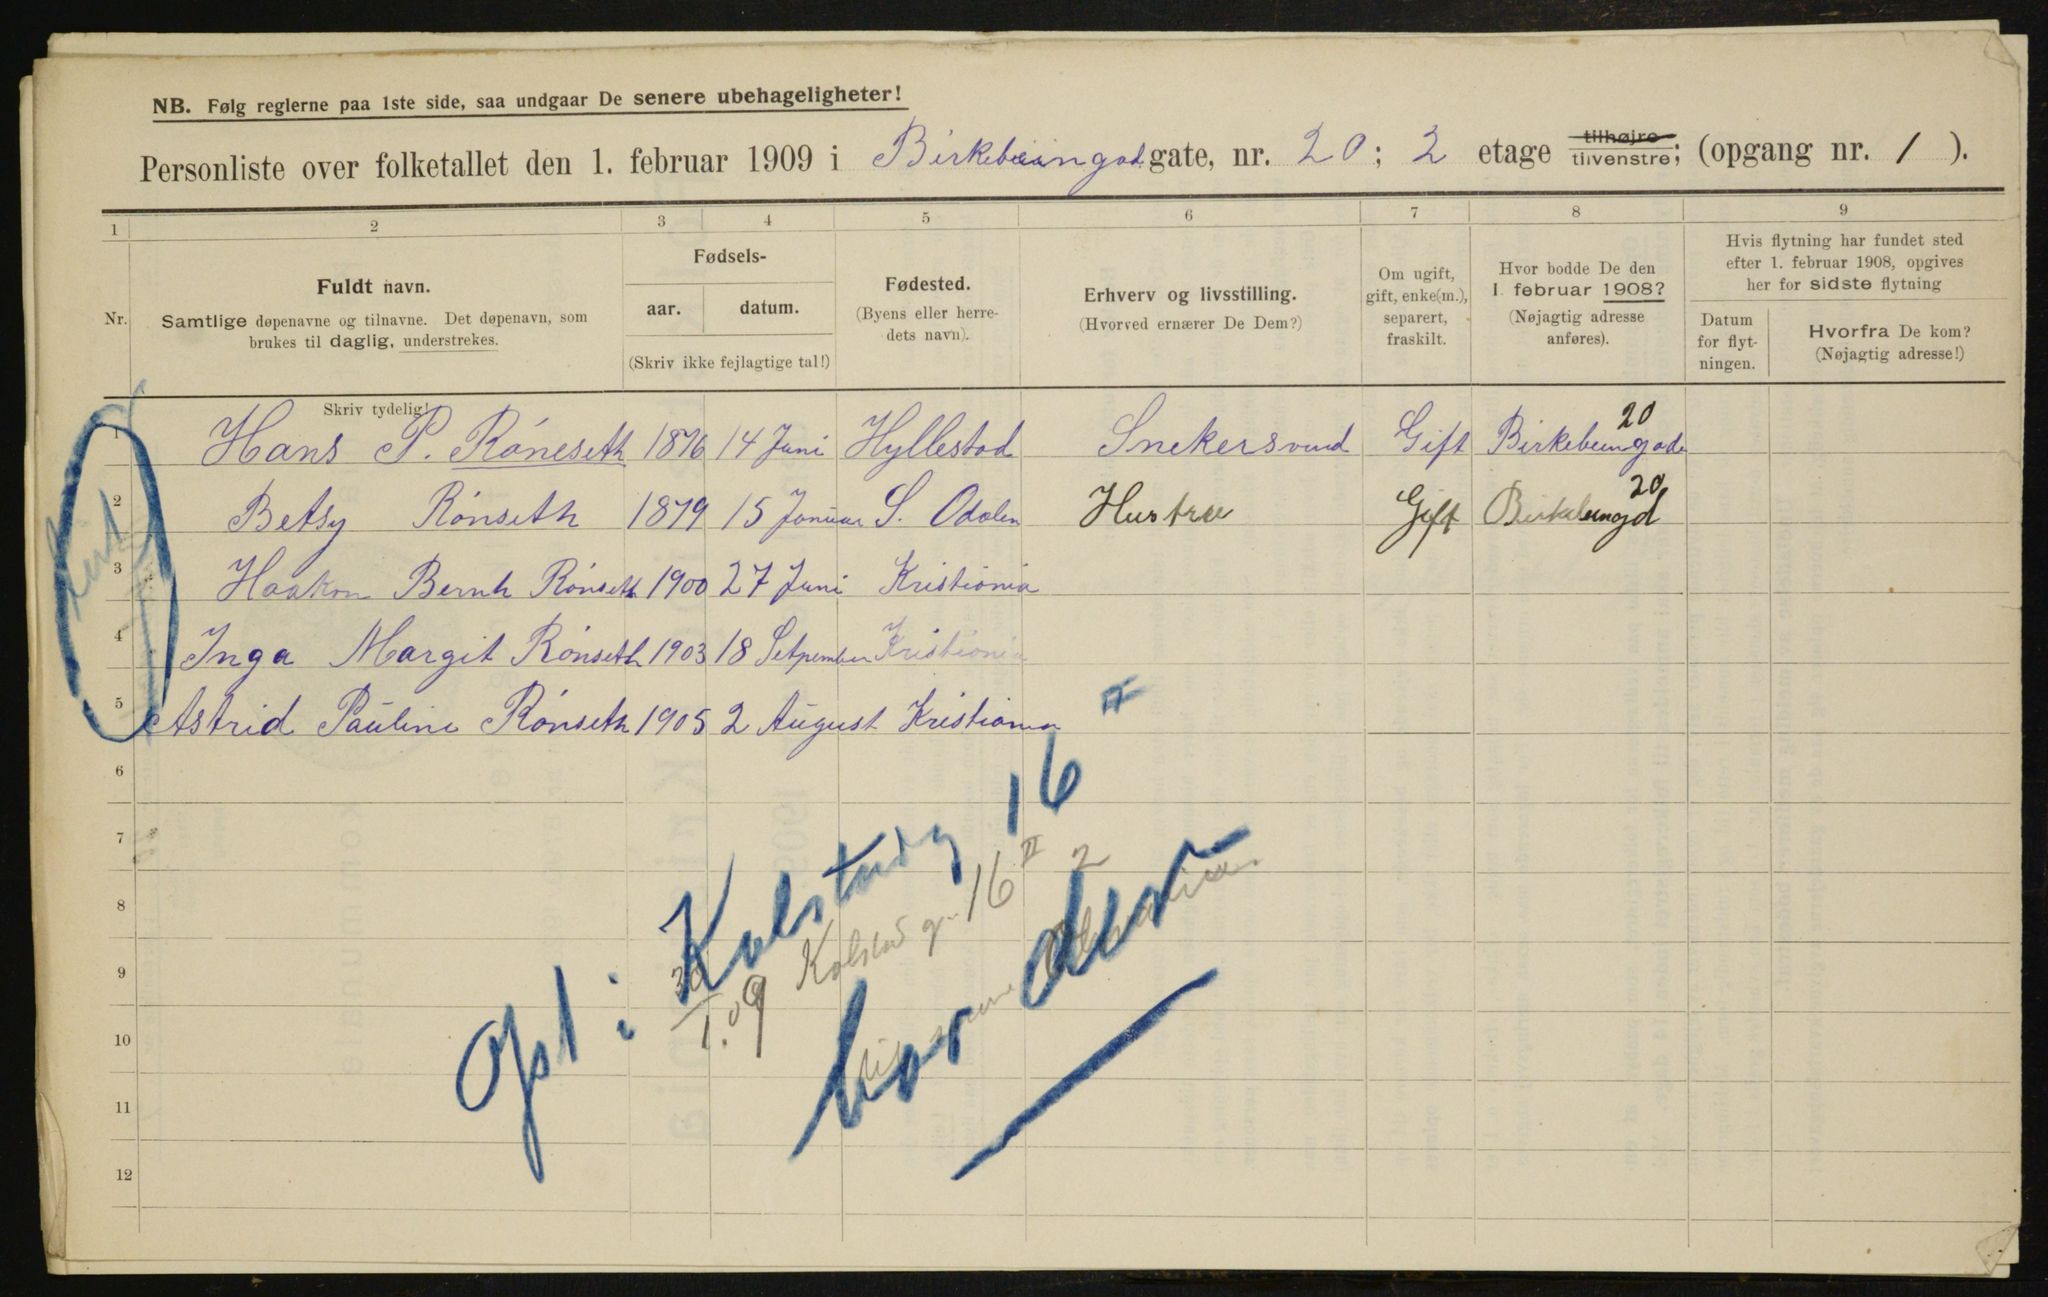 NB. Følg reglerne paa 1ste side, saa undgaar De senere ubehageligheter!
Personliste over folketallet den 1. februar 1909 i Birkebeingad. gate, nr. 20; 2 etage tilhøjre tilvenstre; (opgang nr. 1 ).
1 2 3 4 5 6 7 8 9
Nr.
Fuldt navn.
Samtlige døpenavne og tilnavne. Det døpenavn, som
brukes til daglig, understrekes.
Skriv tydelig!
Fødsels-
aar. datum.
(Skriv ikke fejlagtige tal!)
Fødested.
(Byens eller herre-
dets navn).
Erhverv og livsstilling.
(Hvorved ernærer De Dem?)
Om ugift,
gift, enke(m.),
separert,
fraskilt.
Hvor bodde De den
1. februar 1908?
(Nøjagtig adresse
anføres).
Hvis flytning har fundet sted
efter 1. februar 1908, opgives
her for sidste flytning
Datum
for flyt-
ningen.
Hvorfra De kom?
(Nøjagtig adresse!)
1 Hans P. Róneseth 1876 14 Juni Hyllestad Snekersvend Gift Birkebeingade 20
2 Betsy Rónseth 1879 15 Januar S. Odalen Hustru Gift Birkebeingd 20
3 Haakon Bernh Rónseth 1900 27 Juni Kristiania
4 Inga Margit Rónseth 1903 18 Setpember Kristiania
5 Astrid Pauline Rónseth 1905 2 August Kristiania
6
7
8
9
10
11
12
Ofst: Kolstadg 16
30/1.09 Kolstad g. 16 II